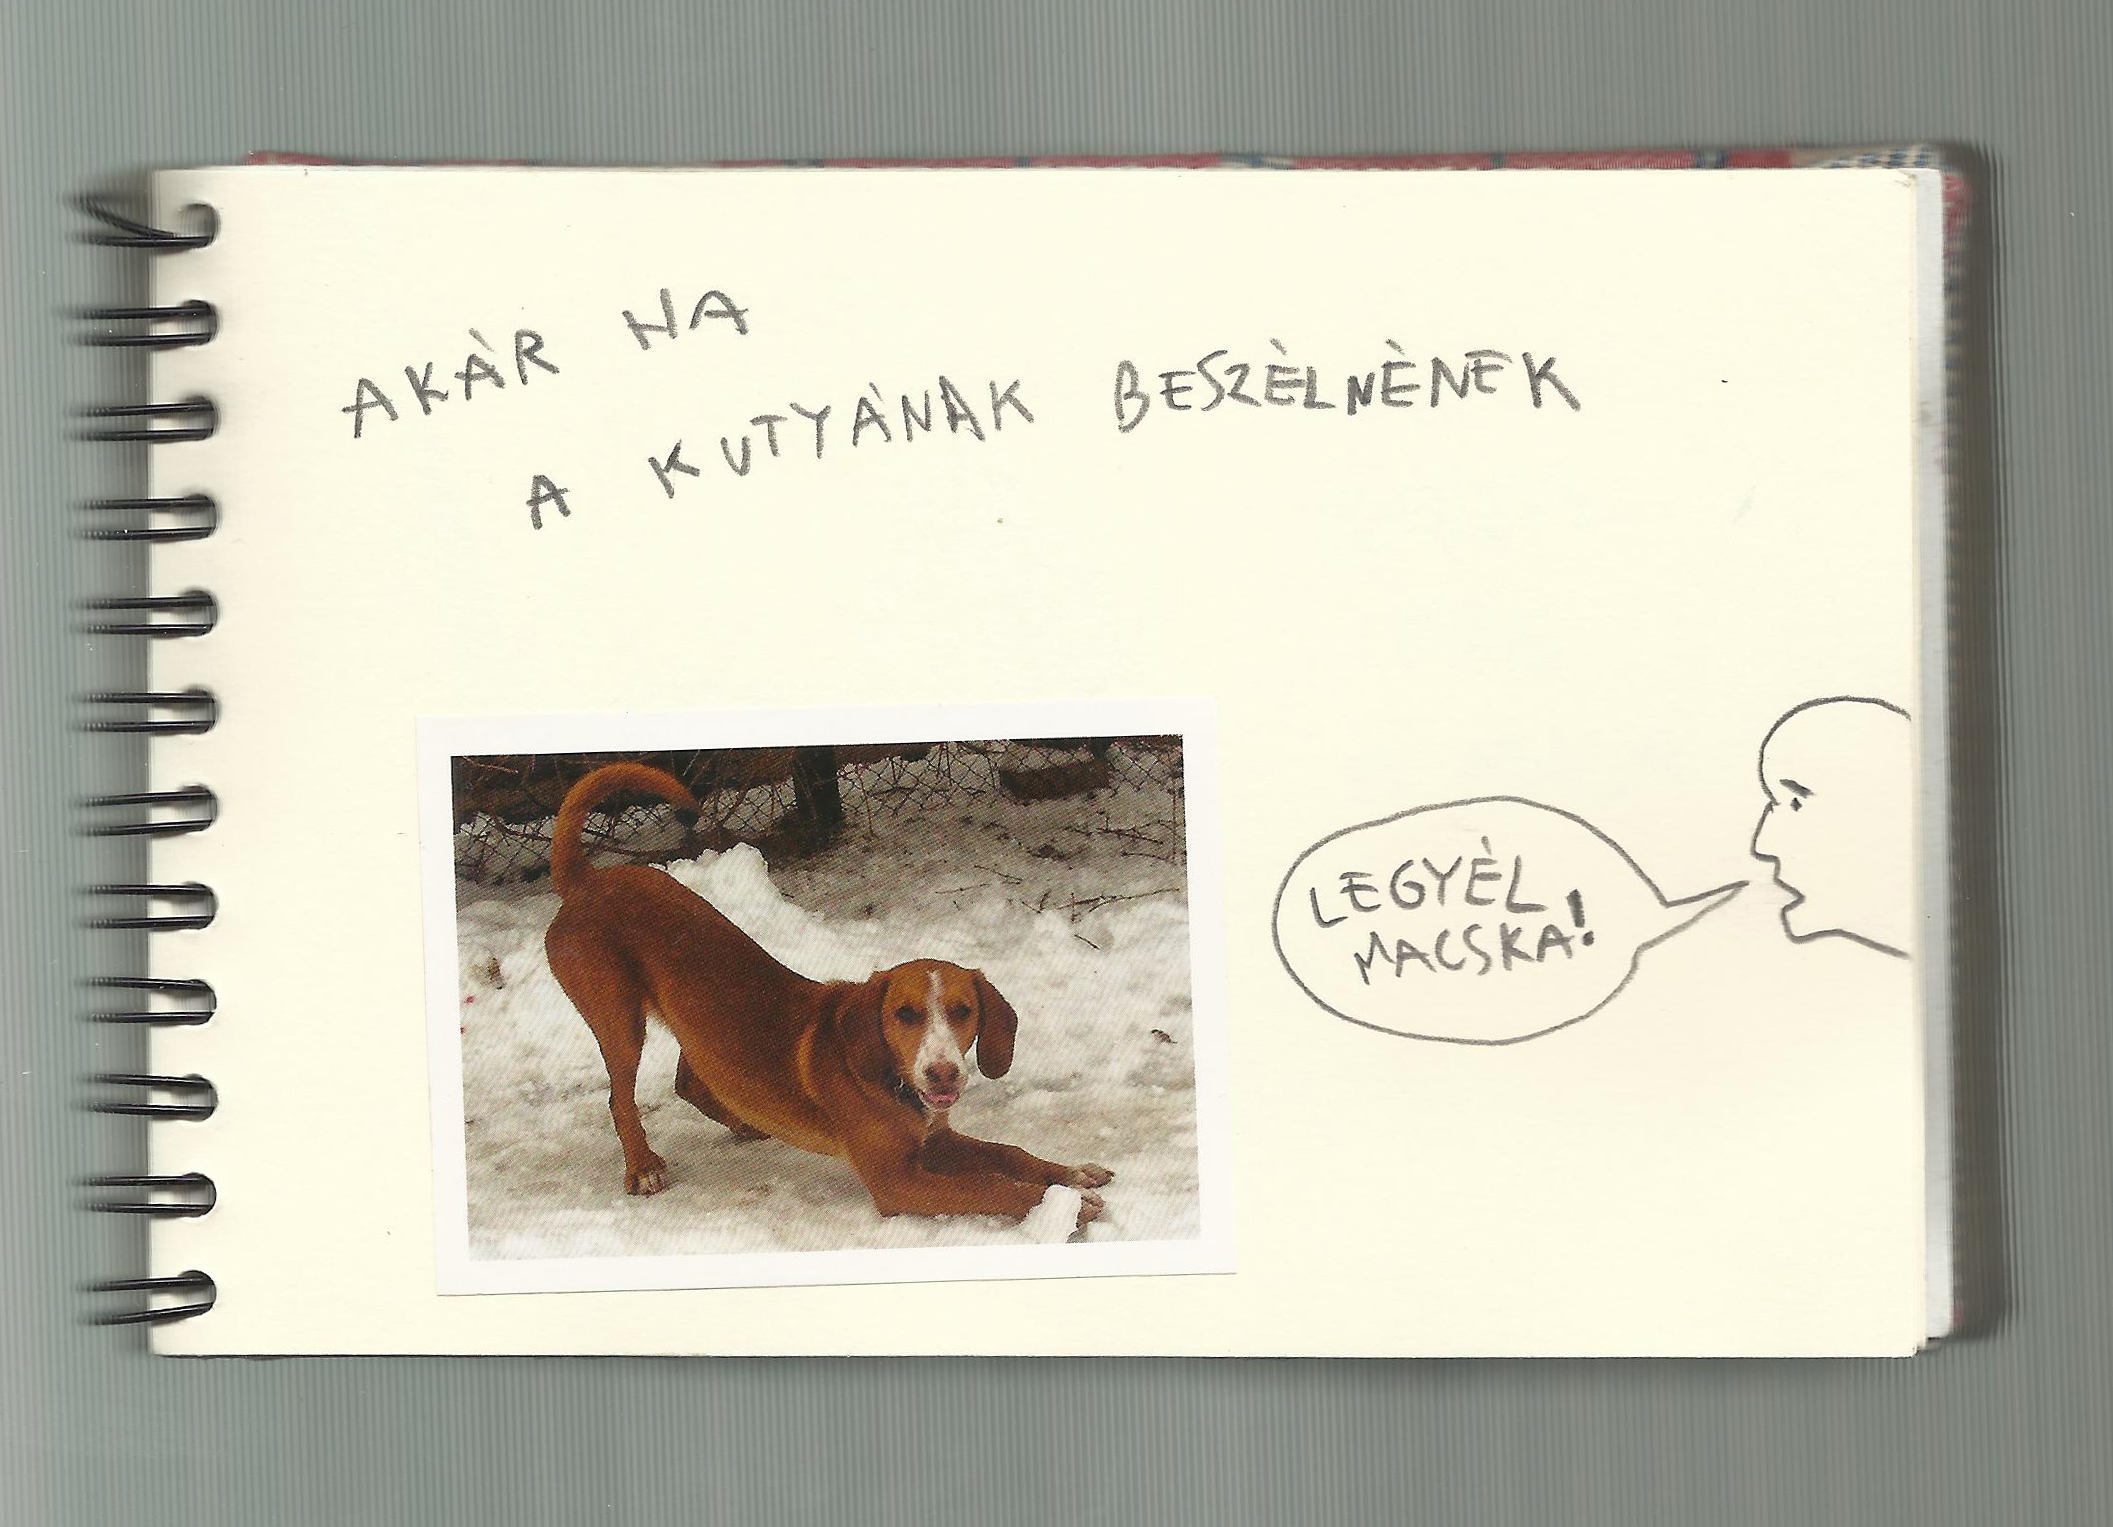 AKÁR HA
A KUTYÁNAK BESZÉLNÉNEK
LEGYÉL
MACSKA!